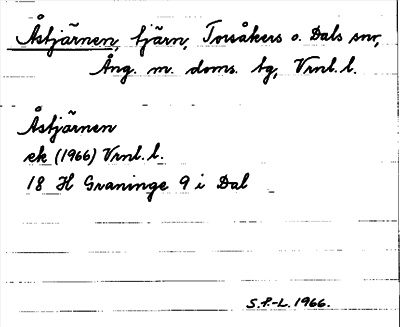 Åstjärnen, tjärn, Torsåkers o. Dals snr,
Ång. m. doms. tg, Vrnl. l.
Åstjärnen
ek (1966) Vrnl. l.
18 H Graninge 9 i Dal
S.P-L. 1966.